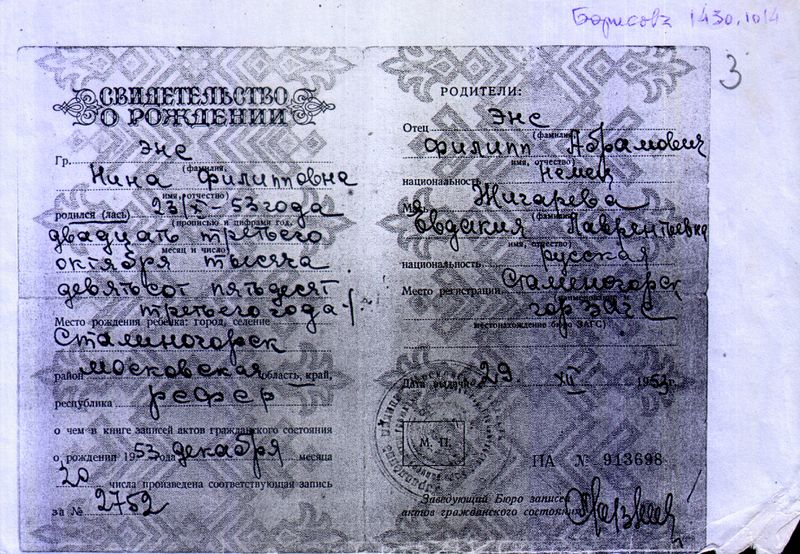 Борисовъ 1430.1014
3
СВИДЕТЕЛЬСТВО
О РОЖДЕНИИ
Гр. Энс
(фамилия,
Нина Филипповна
имя, отчество)
родился (лась) 23/X-53 года
(прописью и цифрами год,
двадцать третьего
месяц и число)
октября тысяча
девятьсот пятьдесят
третьего года
Место рождения ребенка: город, селение
Сталиногорск
район Московская область, край,
республика РСФСР
о чем в книге записей актов гражданского состояния
о рождении 1953 года декабря месяца
20 числа произведена соответствующая запись
за № 2752
РОДИТЕЛИ:
Отец Энс
(фамилия,
Филипп Абрамович
имя, отчество)
национальность Немец
Жигарева
(фамилия,
Евдокия Лаврентьевна
имя, отчество)
национальность русская
Место регистрации Сталиногорск
гор ЗАГС
местонахождение бюро ЗАГС)
Дата выдачи 29 XII 1953 г.
М. П.
ПА № 913698
Заведующий Бюро записей
актов гражданского состояния